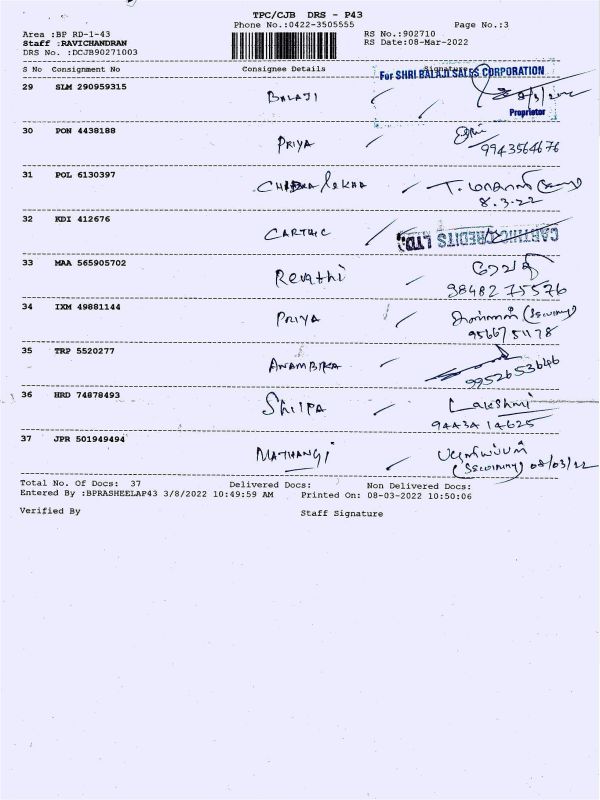 TPC/CJB DRS - P43
Phone No.:0422-3505555
Page No.:3
Area :BP RD-1-43
RS No.:902710
Staff :RAVICHANDRAN
RS Date:08-Mar-2022
DRS No. :DCJB90271003
S No Consignment No Consignee Details Signature
For SHRI BALAJI SALES CORPORATION
29 SLM 290959315 BALAJI
Proprietor
30 PON 4438188 PRIYA
9943564676
31 POL 6130397 CHANDRA lekHA
8.3.22
32 KDI 412676 CARTHIC
CARTHIC CREDITS LTD.
33 MAA 565905702 Revathi ரேவதி
98482 75576
34 IXM 49881144 PRIYA
9566751178
35 TRP 5520277 ANAMBIKA
9952653646
36 HRD 74878493 SHILPA Lakshmi
9443A 14625
37 JPR 501949494 MATHANGI
08/03/22
Total No. Of Docs: 37 Delivered Docs: Non Delivered Docs:
Entered By :BPRASHEELAP43 3/8/2022 10:49:59 AM Printed On: 08-03-2022 10:50:06
Verified By Staff Signature